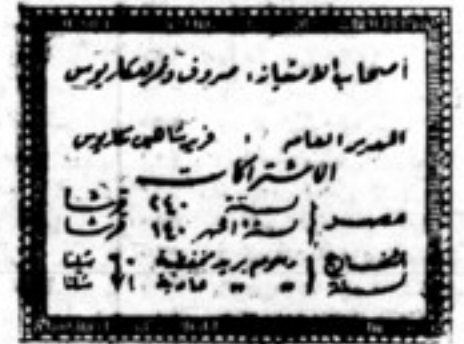 أصحاب الامتياز: صروف ونمر ومكاريوس
المدير العام : فريد شاهين مكاريوس
الاشتراكات
مصر سنة ٢٤٠ قرشا
ستة أشهر ١٤٠ قرشا
الخارج رسوم بريد مخفضة ٦٠ شلنا
لسنة " " عادية ٧١ شلنا